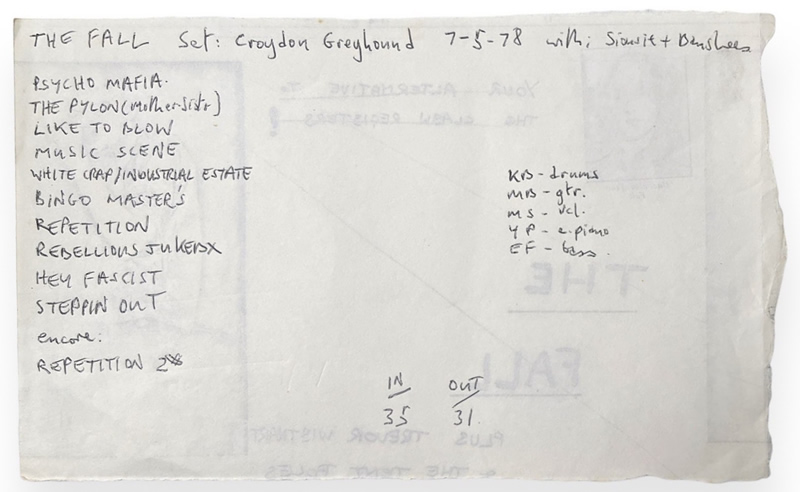 THE FALL Set: Croydon Greyhound 7-5-78 with; Siouxsie + Banshees
PSYCHO MAFIA.
THE PYLON (Mother-Sister)
LIKE TO BLOW
MUSIC SCENE
WHITE CRAP/INDUSTRIAL ESTATE
BINGO MASTER'S
REPETITION
REBELLIOUS JUKEBX
HEY FASCIST
STEPPIN OUT
encore:
REPETITION 2
KB - drums
MB - gtr.
MS - vcl.
YP - e. piano
EF - bass.
IN OUT
35 31.
YOUR ALTERNATIVE TO
THE CLASH REGISTERS!
THE
FALL
PLUS TREVOR WISHART
& THE TENT POLES